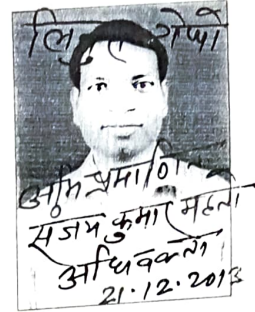 अभिप्रमाणित
संजय कुमार महतो
अधिवक्ता
21.12.2013